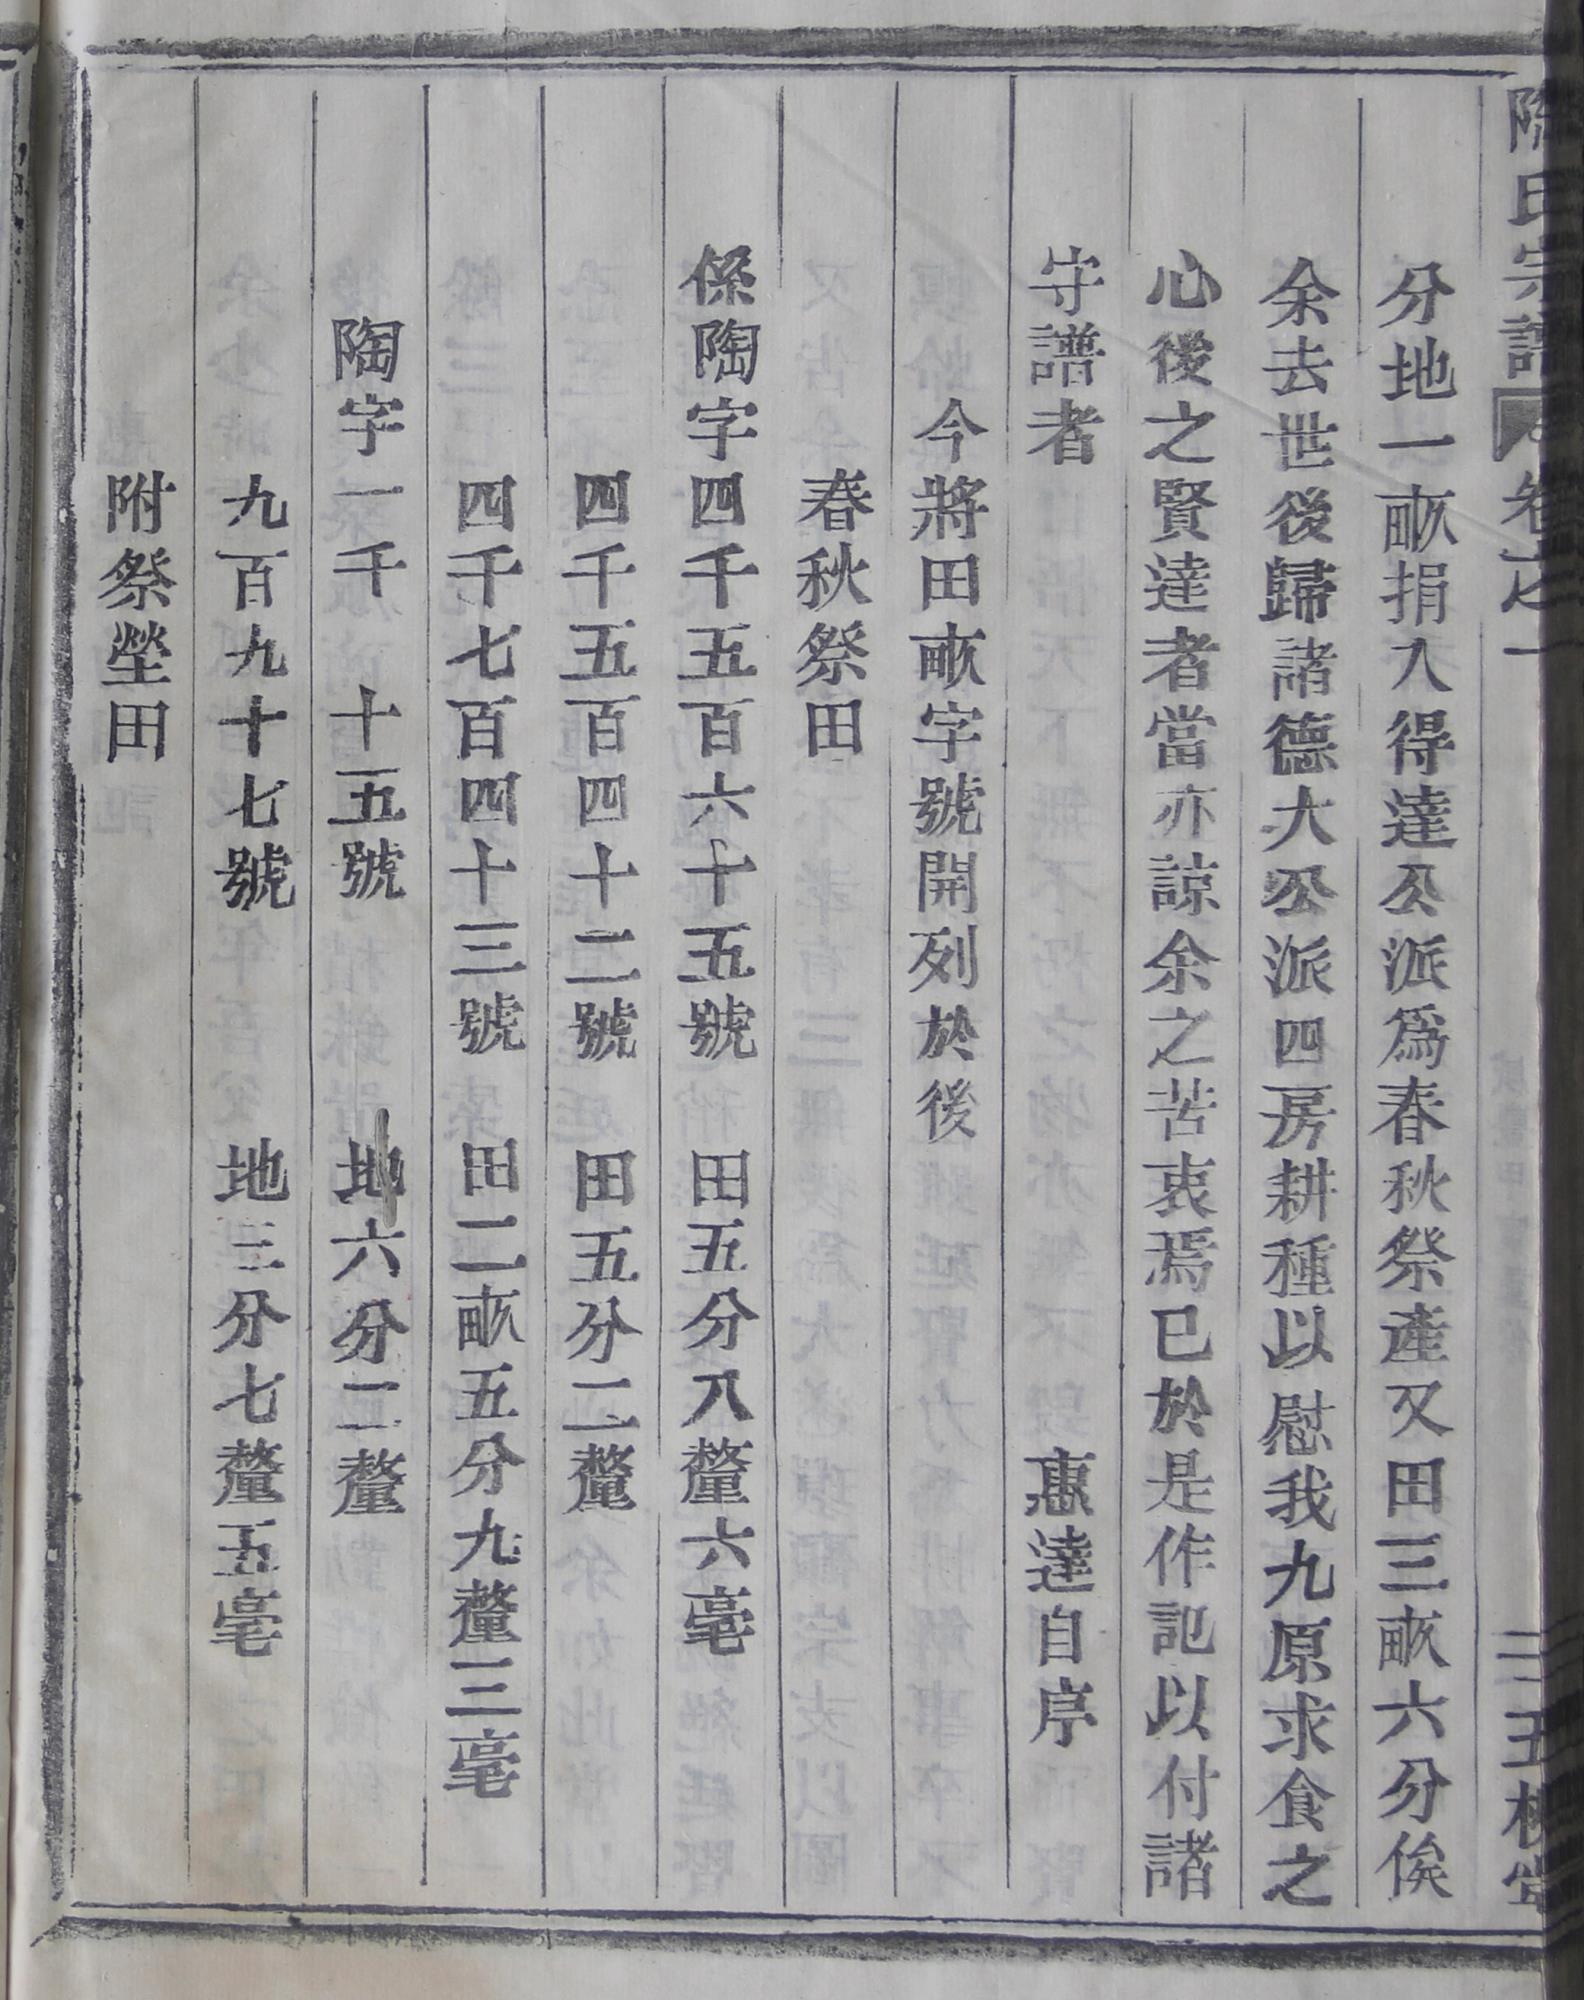 陶氏宗譜 卷之一 三 五柳堂
分地一畝捐入得達公派爲春秋祭產又田三畝六分俟
余去世後歸諸德大公派四房耕種以慰我九原求食之
心後之賢達者當亦諒余之苦衷焉已於是作記以付諸
守譜者 惠達自序
今將田畝字號開列於後
春秋祭田
係陶字四千五百六十五號 田五分八釐六毫
四千五百四十二號 田五分二釐
四千七百四十三號 田二畝五分九釐三毫
陶字一千 十五號 地六分二釐
九百九十七號 地三分七釐五毫
附祭塋田